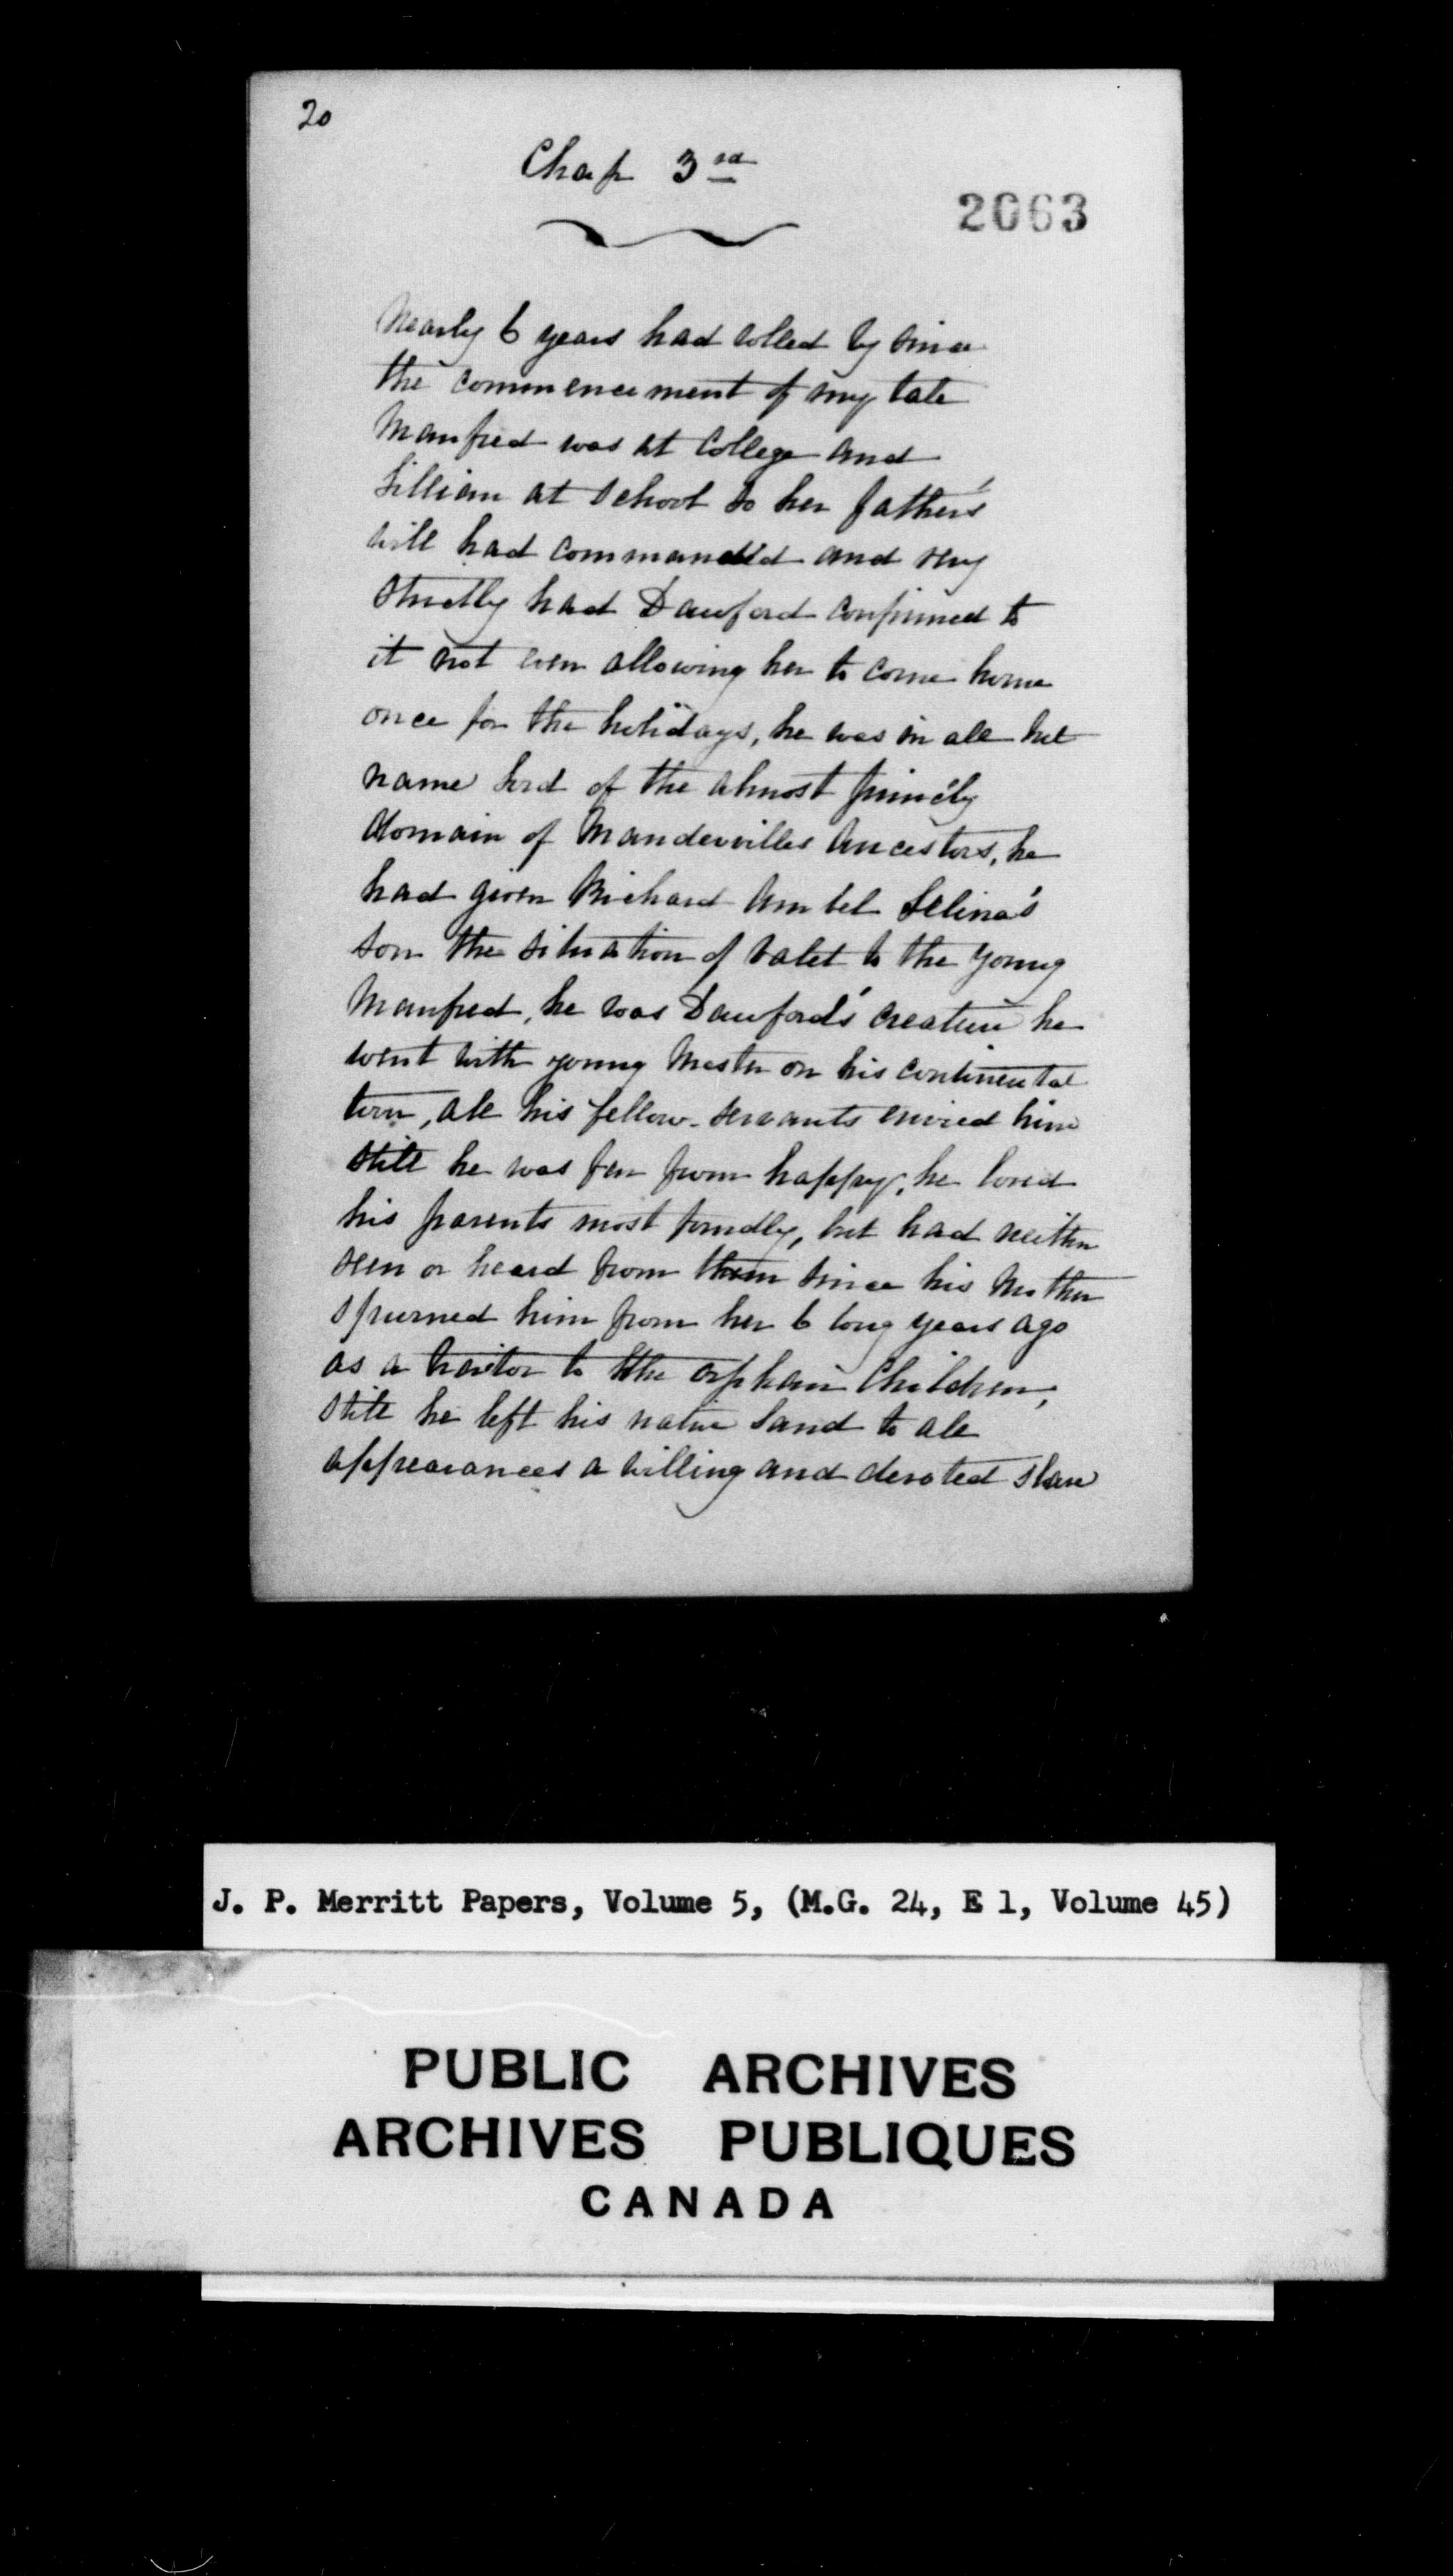 20
Chap 3rd
2063
Nearly 6 years had rolled by since
the commencement of my tale
Manfred was at College and
Lillian at school so her father's
will had commanded and very
strictly had Dawford confirmed to
it not even allowing her to come home
once for the holidays, he was in all but
name Lord of the almost princely
domain of Mandevilles Ancestors, he
had given Richard Selina's
son the situation of valet to the young
Manfred, he was Dawford's creature he
went with young Master on his continental
tour, all his fellow-servants envied him
still he was far from happy, he loved
his parents most fondly, but had neither
seen or heard from them since his Mother
spurned him from her 6 long years ago
as a traitor to the orphan Children,
still he left his native Land to all
appearances a willing and devoted slave
J. P. Merritt Papers, Volume 5, (M.G. 24, E 1, Volume 45)
PUBLIC ARCHIVES
ARCHIVES PUBLIQUES
CANADA